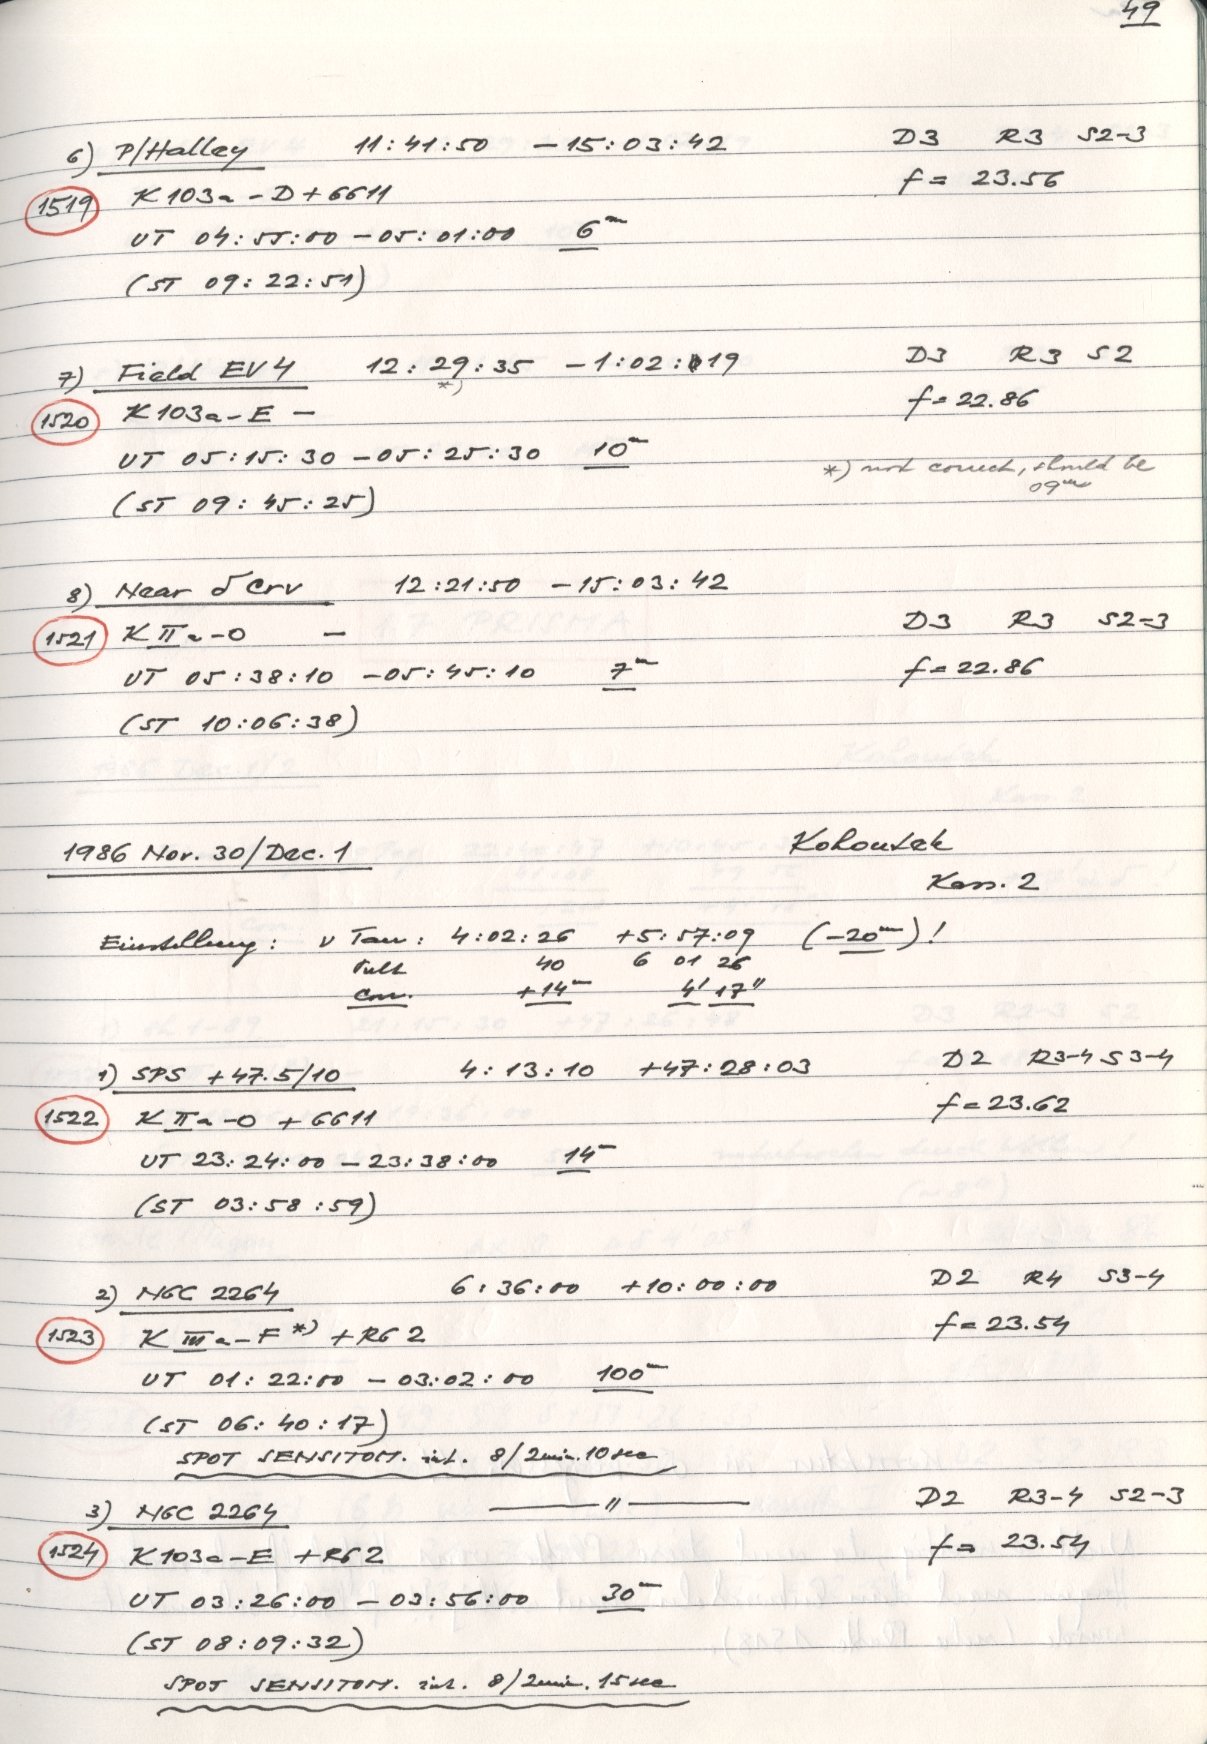 49
6) P/Halley 11:41:50 -15:03:42 D3 R3 S2-3
1519 K 103a-D+GG11 f = 23.56
UT 04:55:00 - 05:01:00 6m
(ST 09:22:51)
7) Field EV4 12:29:35 -1:02:19 D3 R3 S2
*)
1520 K 103a-E - f=22.86
UT 05:15:30 - 05:25:30 10m
*) not correct, should be
09m
(ST 09:45:25)
8) Near δ Crv 12:21:50 -15:03:42
1521 K IIa-O - D3 R3 S2-3
UT 05:38:10 - 05:45:10 7m f=22.86
(ST 10:06:38)
1986 Nov. 30/Dec. 1 Kohoutek
Kass. 2
Einstellung: ν Tau: 4:02:26 +5:57:09 (-20m)!
Pult 40 6 01 26
Corr. +14m 4' 17"
1) SPS +47.5/10 4:13:10 +47:28:03 D2 R3-4 S3-4
1522 K IIa-O + GG11 f=23.62
UT 23:24:00 - 23:38:00 14m
(ST 03:58:59)
2) NGC 2264 6:36:00 +10:00:00 D2 R4 S3-4
1523 K IIIa-F *) + RG2 f=23.54
UT 01:22:00 - 03:02:00 100m
(ST 06:40:17)
SPOT SENSITOM. int. 8/2min.10sec
3) NGC 2264 —— " —— D2 R3-4 S2-3
1524 K 103a-E + RG2 f= 23.54
UT 03:26:00 - 03:56:00 30m
(ST 08:09:32)
SPOT SENSITOM. int. 8/2min.15sec